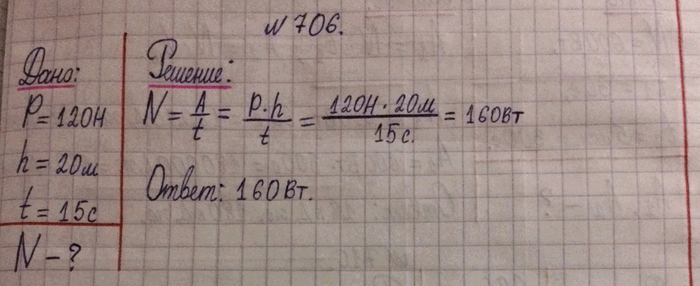 N 706.
Дано:
P = 120Н
h = 20м
t = 15с
N - ?
Решение:
N = A/t = P·h/t = 120Н · 20м/15с. = 160Вт
Ответ: 160Вт.